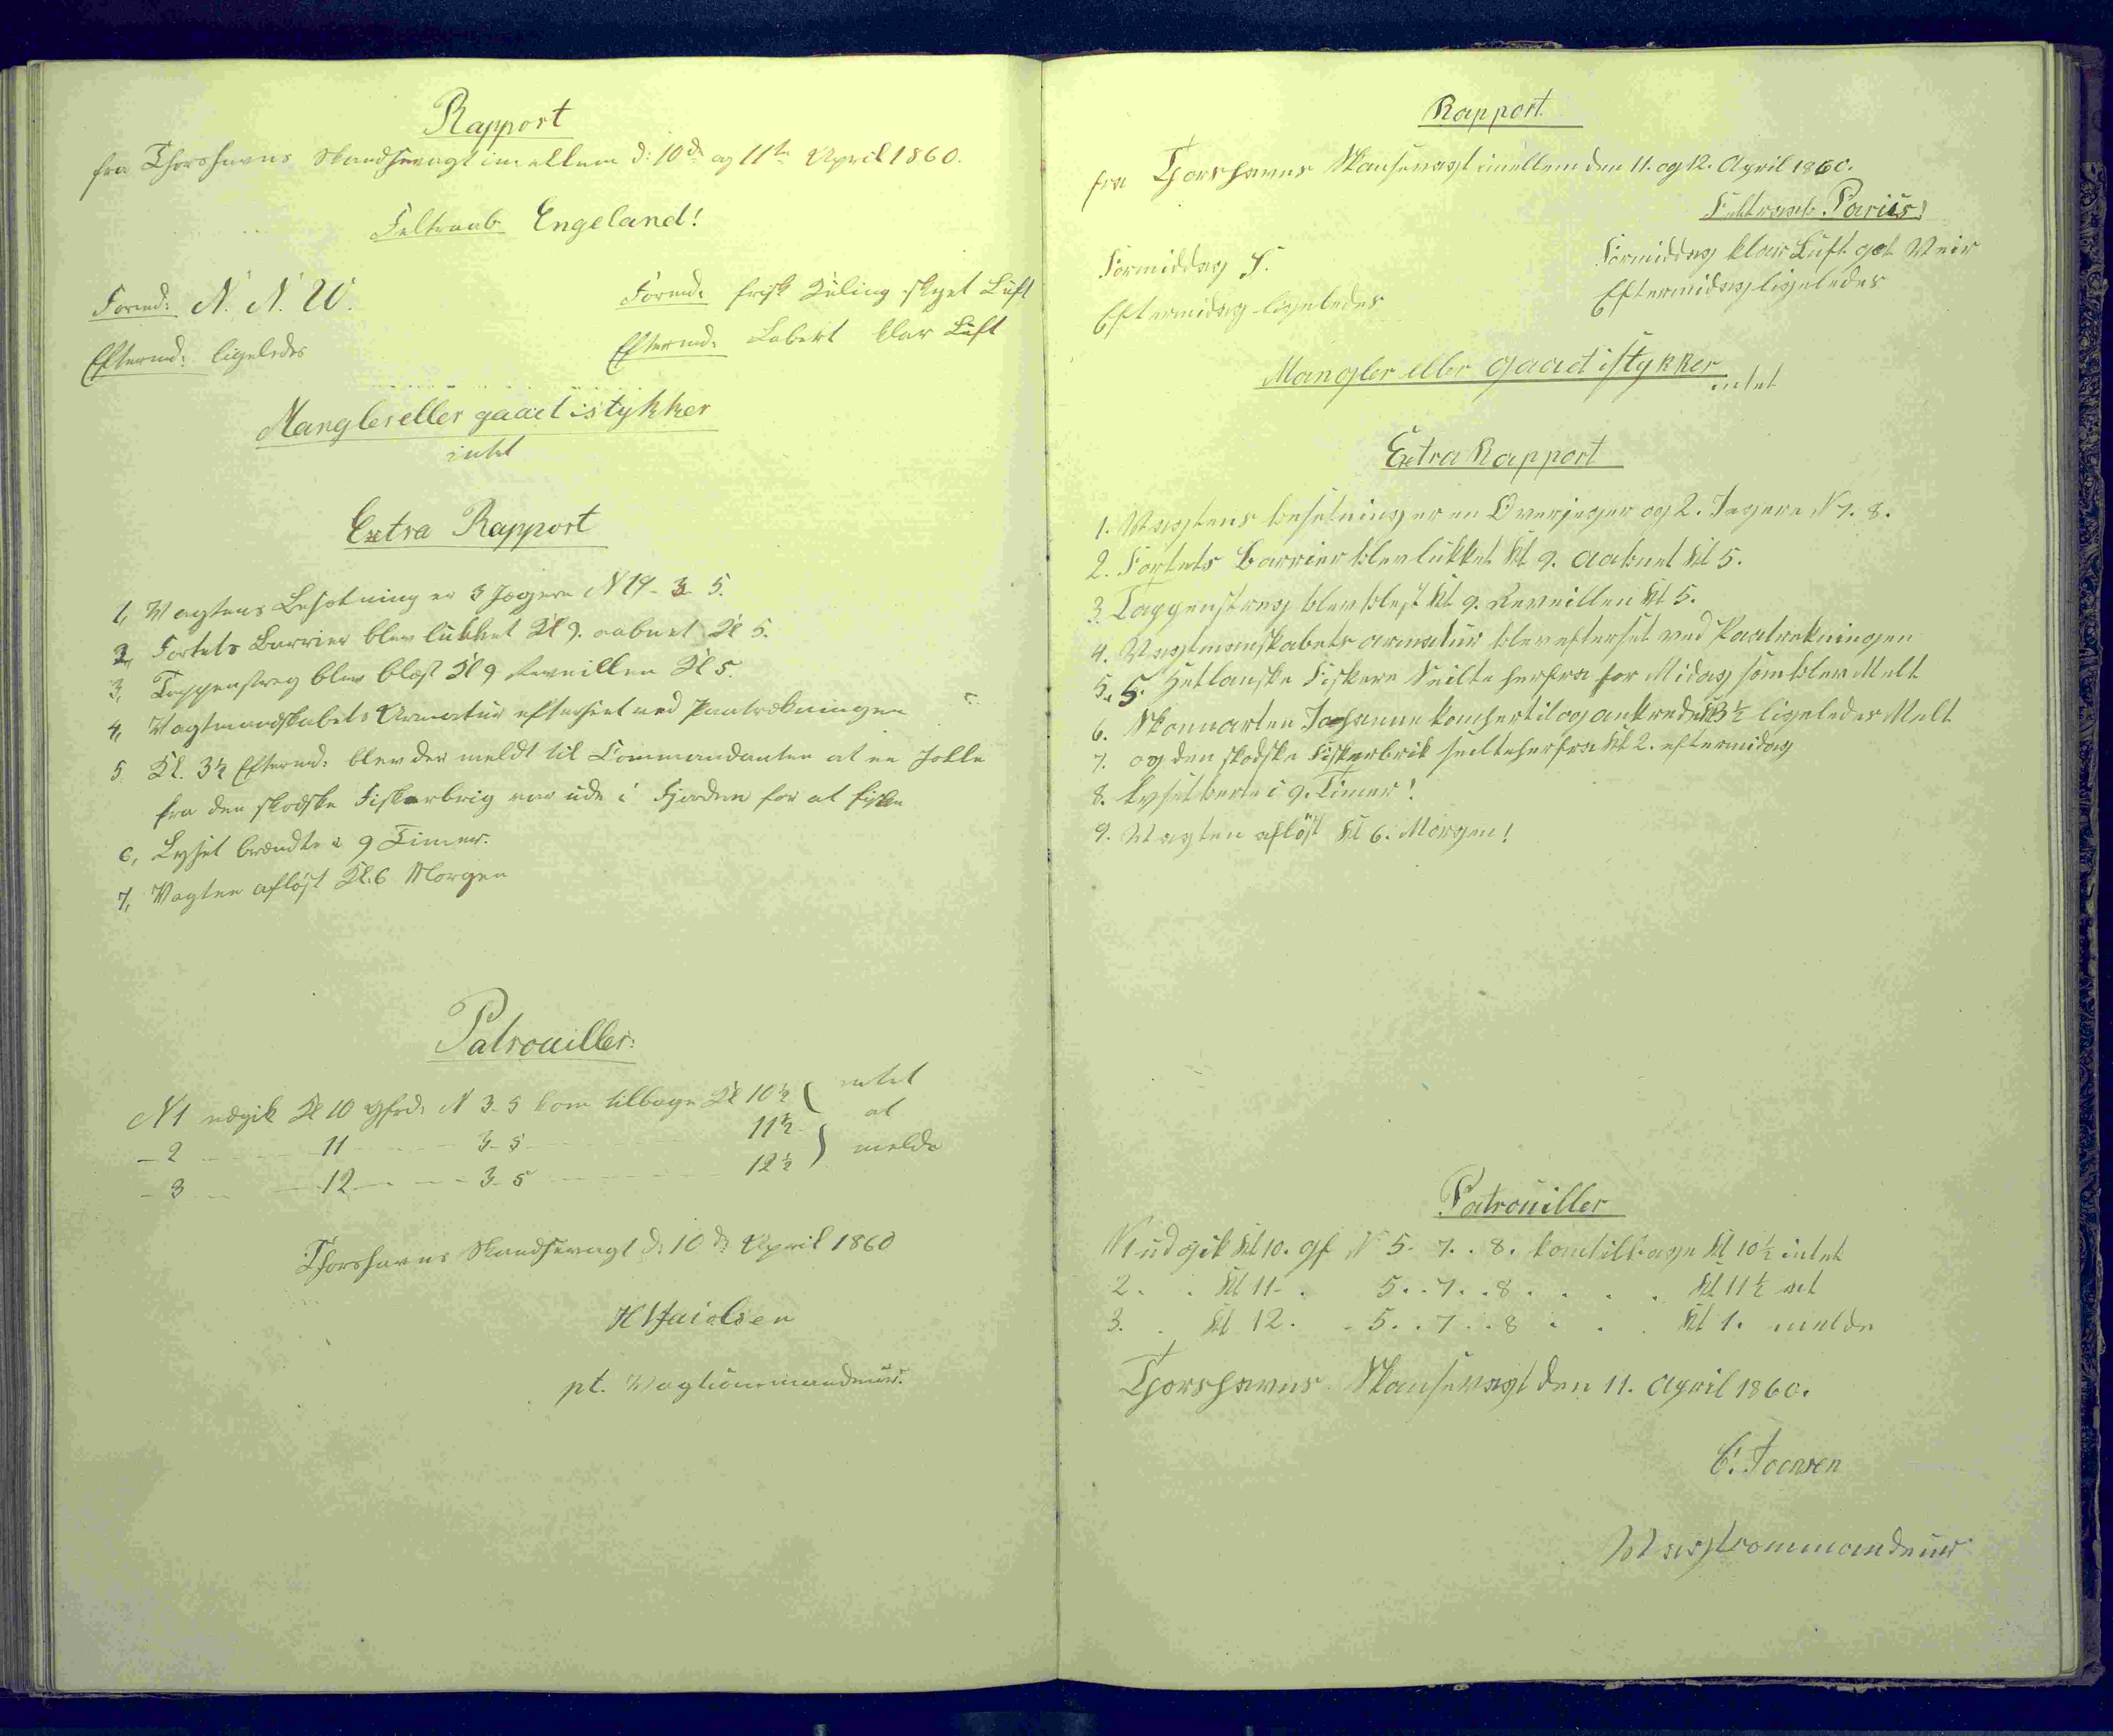 Rapport
fra Thorshavns Skandsevagt imellem d: 10de og 11te April 1860.
Feltraab Engeland!
Formd: N. N. W.
Formd: frisk Kuling skyet Luft
Eftermd: ligeledes
Eftermd: Labert klar Luft
Mangler eller gaaet istykker
intet
Extra Rapport
1, Vagtens Besætning er 3 Jægere N 19- 3- 5.
2, Fortets Barrier blev lukket Kl 9. aabnet Kl 5.
3, Tappenstreg blev blæst Kl 9 Reveillen Kl 5.
4, Vagtmandskabets Armatur efterseet ved Paatrækningen
5. Kl. 3½ Eftermd: blev der meldt til Commandanten at en Jolle
fra den skodske Fiskerbrig var ude i Fjorden for at fiske
6, Lyset brændte i 9 Timer.
7, Vagten afløst Kl. 6 Morgen
Patrouiller:
N 1 udgik Kl 10 gfrd: N 3- 5 kom tilbage Kl 10½ intet
- 2 11 3- 5 11½ at
- 3 12 3- 5 12½ melde
Thorshavns Skandsevagt d: 10de April 1860
pt. Vagtcommandeur.
Rapport.
fra Thorshavns Skansevagt imellem den 11. og 12. April 1860.
Feltraab. Pariis!
Formiddag S.
Formiddag klar Luft got Veir
Eftermidag ligeledes
Eftermidag ligeledes
Mangler eller gaaet istykker
intet
Extra Rapport
1. Vagtens besetning er en Overjeger og 2. Jegere N 7. 8.
2. Fortets Barrier blev lukket Kl 9. aabnet Kl 5.
3. Tappenstreg blev blest Kl 9. Reveillen Kl 5.
4. Vagtmanskabets armatur blev efterset ved Paatrekningen
5. 5. Hetlanske Fiskere Seilte herfra for Midag som blev Melt
6. Skonnarten Johanne kom hertil og ankrede Kl 3½ ligeledes Melt
7. og den skodske Fiskerbrik seilte herfra Kl 2. eftermidag
8. Lyset brente i 9. Timer!
9. Vagten afløst Kl 6. Morgen!
Patrouiller
N 1 udgik Kl 10. gf N 5. 7. . 8. kom tilbage Kl 10½ intet
2. . Kl 11. . 5. . 7. . 8 . . . . Kl 11½ at
3. . Kl 12. . 5. . 7. . 8 . . . Kl 1. melde
Thorshavns Skansevagt den 11. April 1860.
C. Joensen
Vagtcommandeur